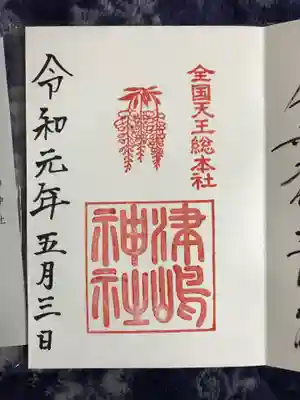 全国天王総本社
津嶋
神社
令和元年五月三日